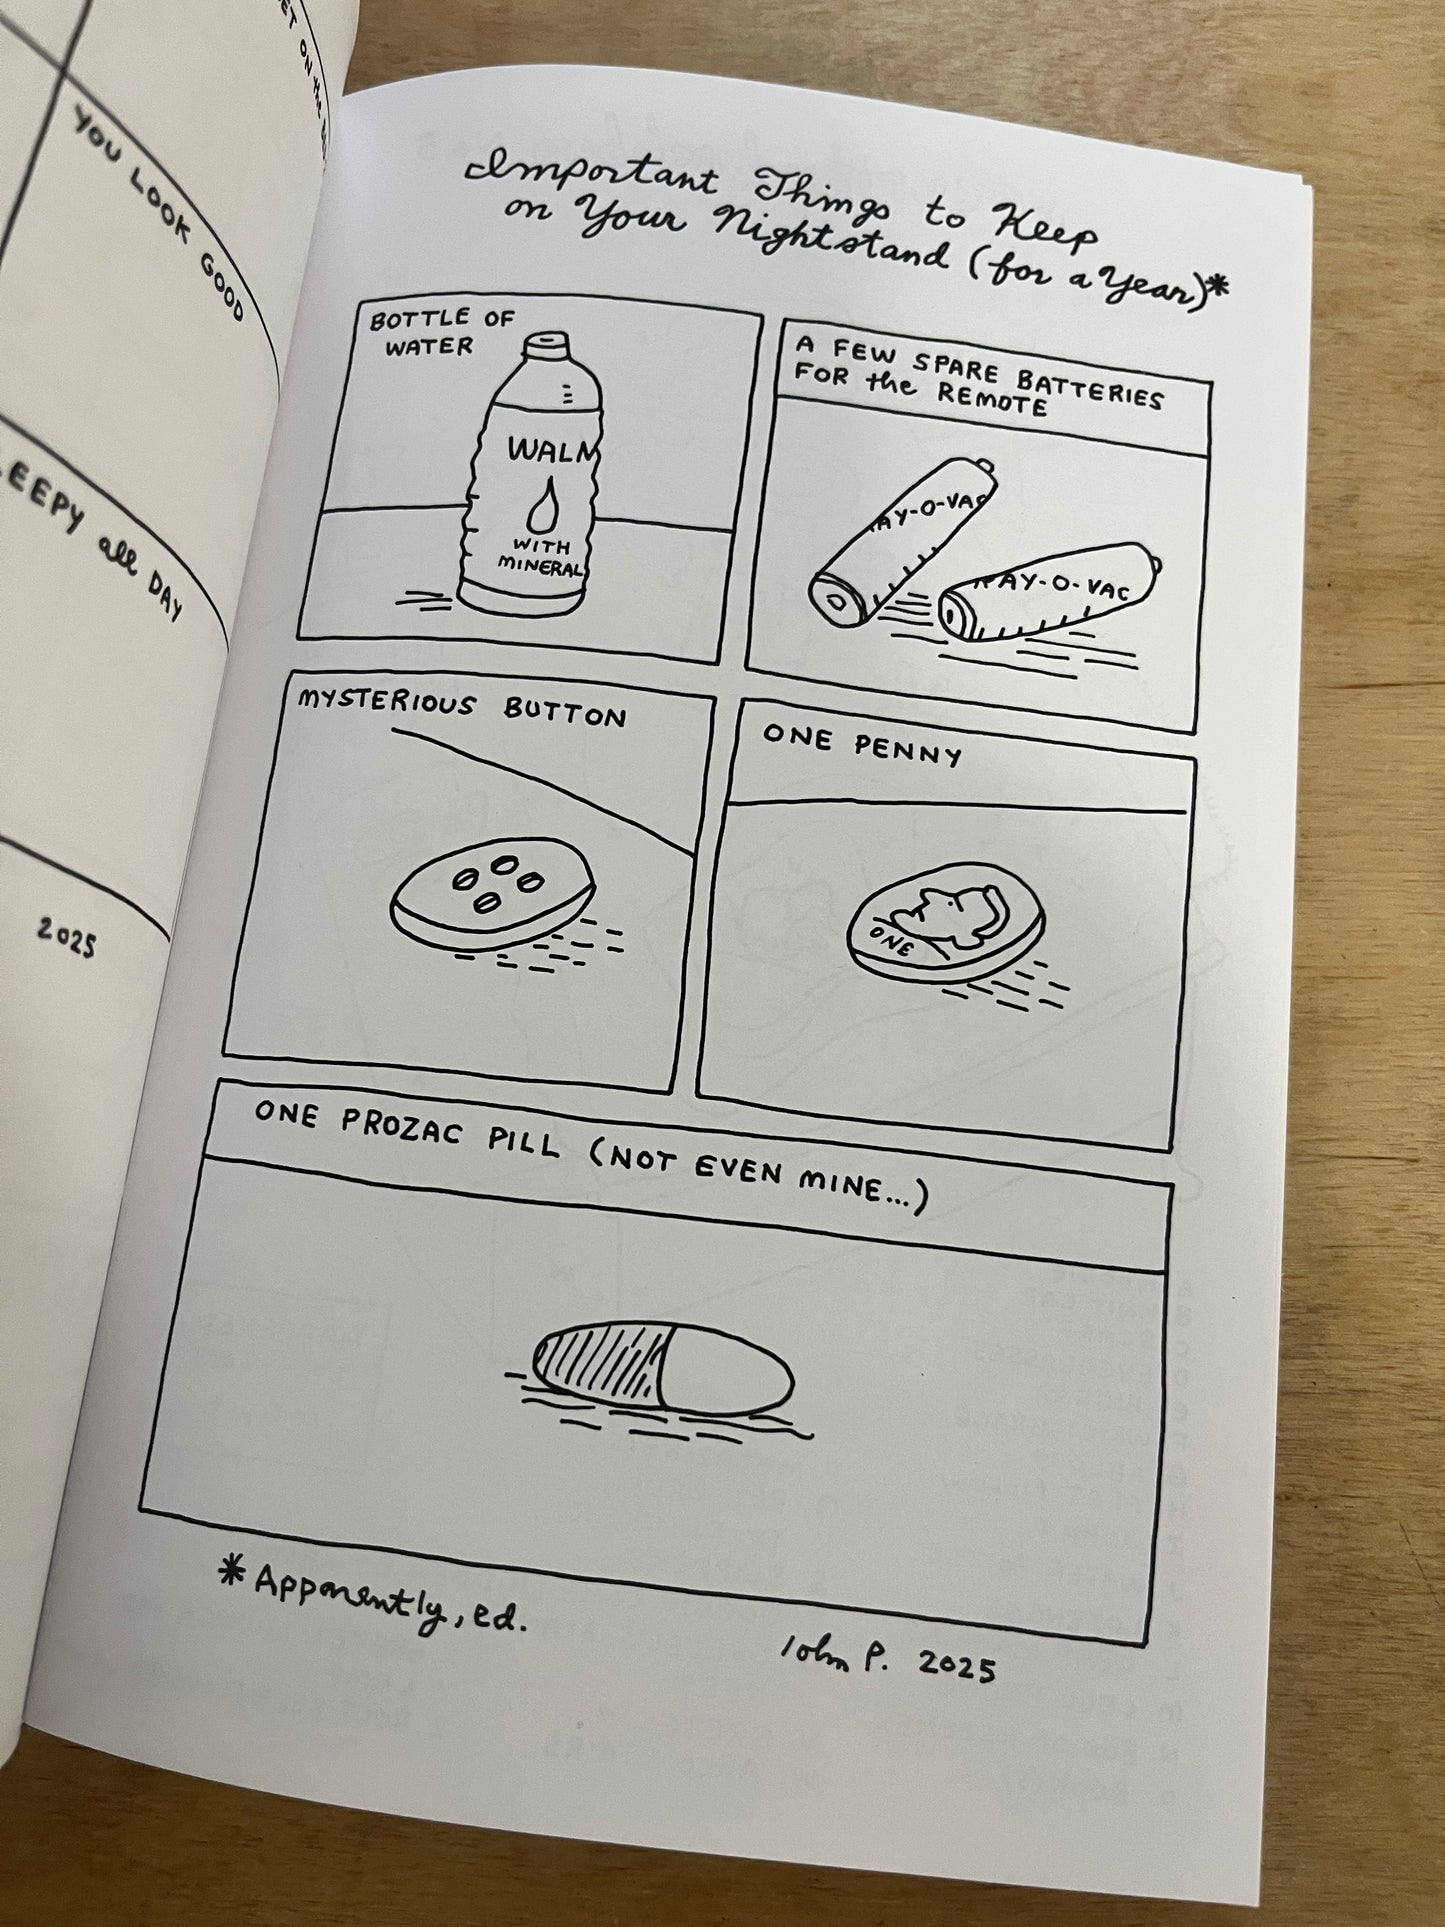 ET ON the
YOU LOOK GOOD
EEPY all DAY
2025
Important Things to Keep
on Your Nightstand (for a Year)*
BOTTLE OF
WATER
WALM
WITH
MINERAL
A FEW SPARE BATTERIES
FOR the REMOTE
AY-O-VAC
RAY-O-VAC
MYSTERIOUS BUTTON
ONE PENNY
ONE
ONE PROZAC PILL (NOT EVEN MINE...)
* Apparently, ed.
John P. 2025